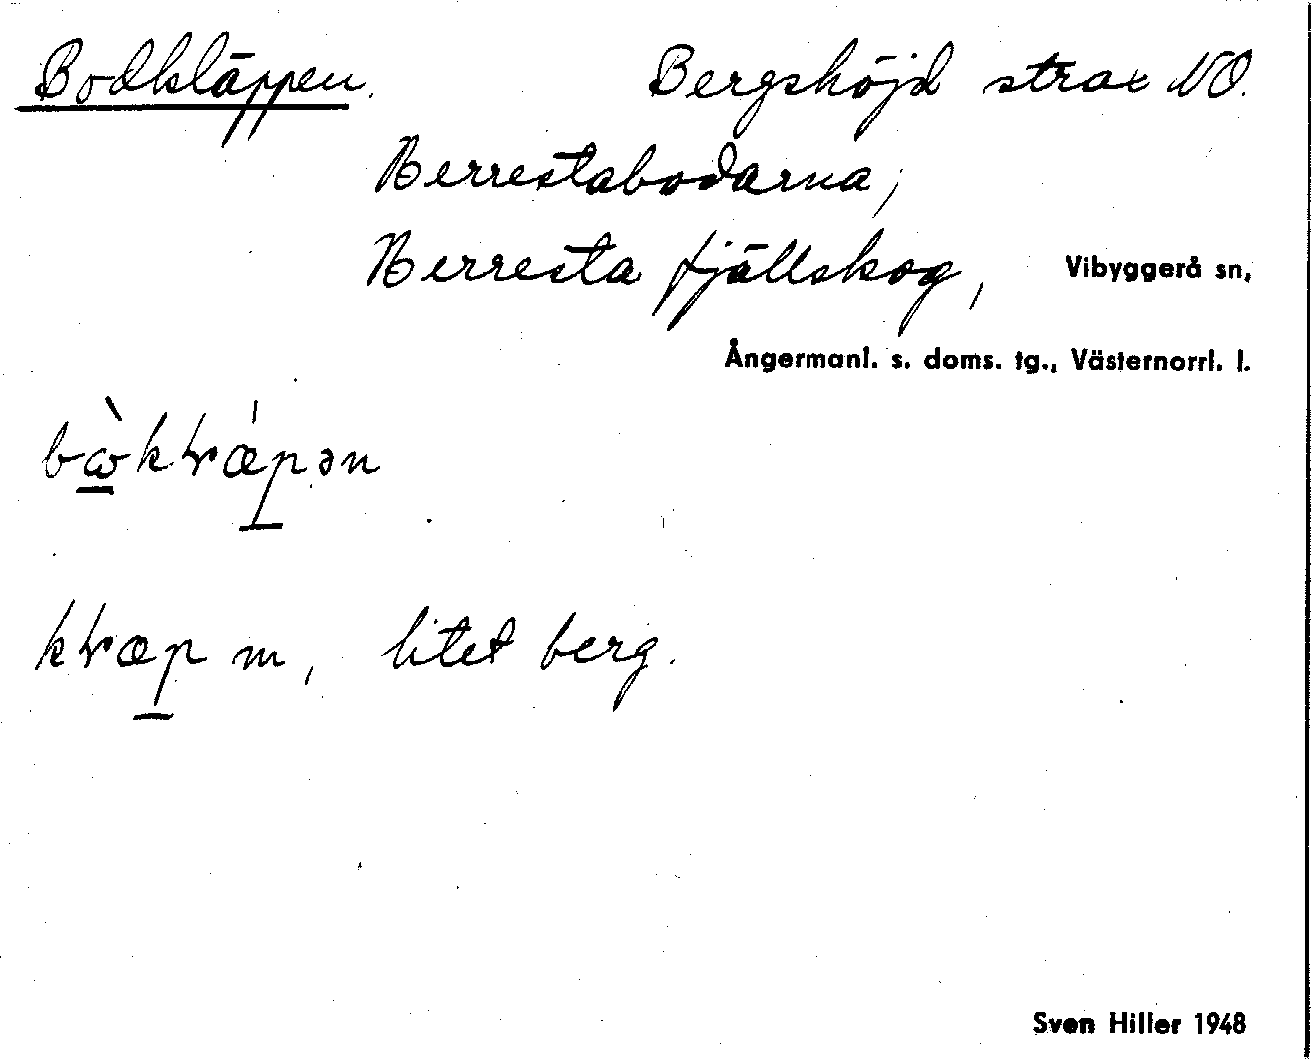 Bodkläppen. Bergshöjd strax NO.
Berrestabodarna,
Berresta fjällskog, Vibyggerå sn,
Ångermanl. s. doms. tg., Västernorrl. l.
m, litet berg.
Sven Hiller 1948